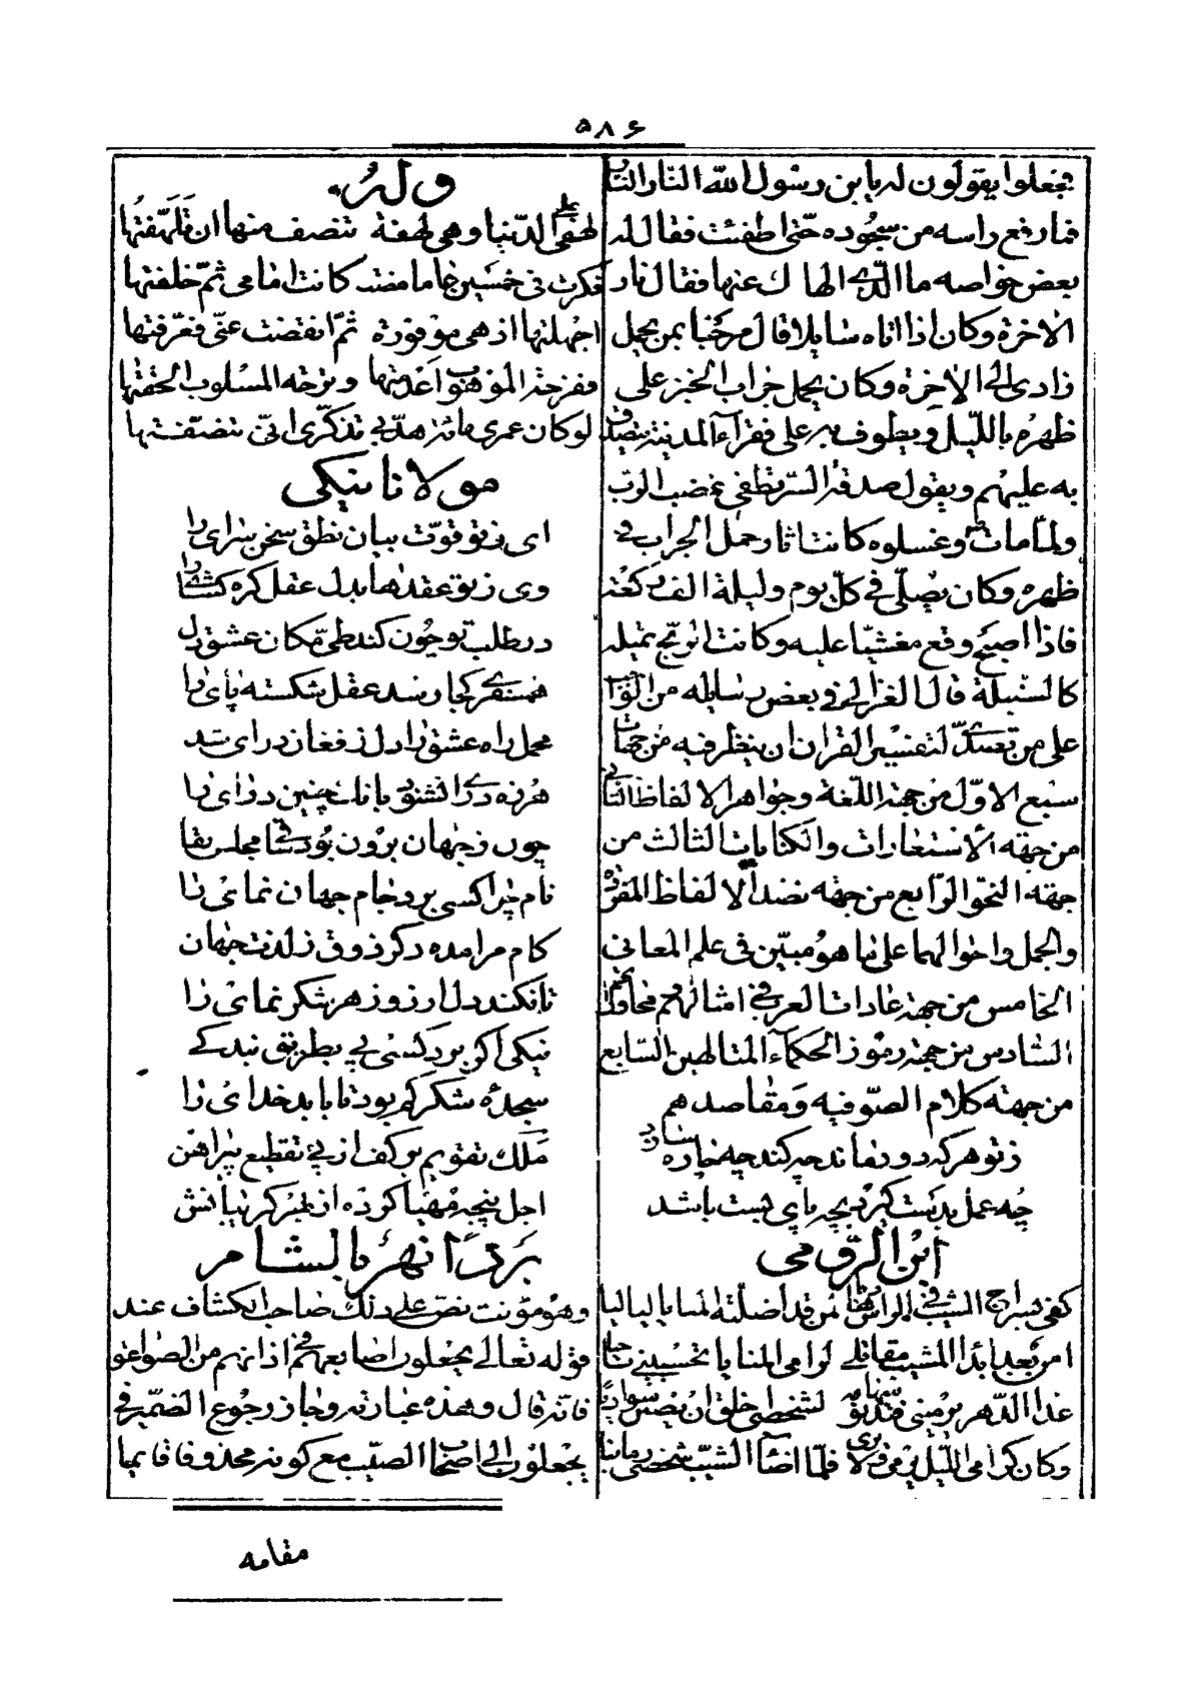 ۵۸۶
فجعلوا يقولون له يابن رسول الله النار النار
فما رفع راسه من سجوده حتى اطفئت فقال له
بعض خواصه ما الذى الهاك عنها فقال نار
الاخرة وكان اذا اتاه سايلا قال مرحبا بمن يحمل
زادى الى الاخرة وكان يحمل جراب الخبز على
ظهره بالليل ويطوف به على فقراء المدينة يتصدق
به عليهم ويقول صدقة السر تطفى غضب الرب
ولما مات وغسلوه كانت اثار حمل الجراب فى
ظهره وكان يصلى فى كل يوم وليلة الف ركعة
فاذا اصبح وقع مغشيا عليه وكانت الريح تميله
كالسنبلة قال الغزالى فى بعض رسايله من الواجب
على من تصدى لتفسير القران ان ينظر فيه من جهات
سبع الاول من جهة اللغة وجواهر الالفاظ الثانى
من جهة الاستعارات والكنايات الثالث من
جهة النحو الرابع من جهة نضد الالفاظ المفردة
والجمل واحوالهما على ما هو مبين فى علم المعانى
الخامس من جهة عادات العرب فى امثالهم ومحاوراتهم
السادس من جهة رموز الحكماء المتالهين السابع
من جهة كلام الصوفية ومقاصدهم
ز تو هر كه دور ماند چه كند چه چاره سازد
چه عمل بدست گيرد بچه پاى بست باشد
ابن الرومى
كفى بسراج الشيب فى الراس هاديا لمن قد اضلته المنايا لياليا
امن بعد ابداء المشيب مقاتلى لرامى المنايا تحسبينى ناجيا
غدا الدهر يرمينى فتدنو سهامه لشخصى خلق ان يصبن سواديا
وكان كرامى الليل يرمى ولا يرى فلما اضاء الشيب شخصى رمانيا
وله
لهفى على الدنيا وهى لهفة تنصف منها ان تلهفتها
فكرت فى خمسين عاما مضت كانت امامى ثم خلفتها
اجهلتها اذ هى موفورة ثم انقضت عنى فعرفتها
ففرحة الموهوب اعدمتها وترحة المسلوب الحقتها
لو كان عمرى مائة هدنى تذكرى انى تنصفتها
مولانا نيكى
اى ز تو قوت بيان نطق سخن سراى را
وى ز تو عقدها بدل عقل گره كشاى را
در طلب تو چون كند طى مكان عشق دل
همسفرى كجا رسد عقل شكسته پاى را
محمل راه عشق را دل ز فغان دراى شد
هرزه دراى نشنود بانك چنين دراى را
چون ز جهان برون بود ساقى مجلس بقا
نام چرا كسى برد جام جهان نماى را
كام مرا مده دگر ذوق ز لذت جهان
تا نكند دل ارزو زهر شكر نماى را
نيكى اگر برد كسى پى بطريق بندگى
سجده شكر كم بود تا بابد خداى را
ملك تقويم بركف از پى تقطيع پيراهن
اجل پنجه مهيا كرده از بهر گريبانش
بردا نهر بالشام
وهو مونث نص على ذلك صاحب الكشاف عند
قوله تعالى يجعلون اصابعهم فى اذانهم من الصواعق
فانه قال وهذه عبارته وجاز رجوع الضمير فى
يجعلون الى اصحاب الصيب مع كونه محذوفا قايما
مقامه